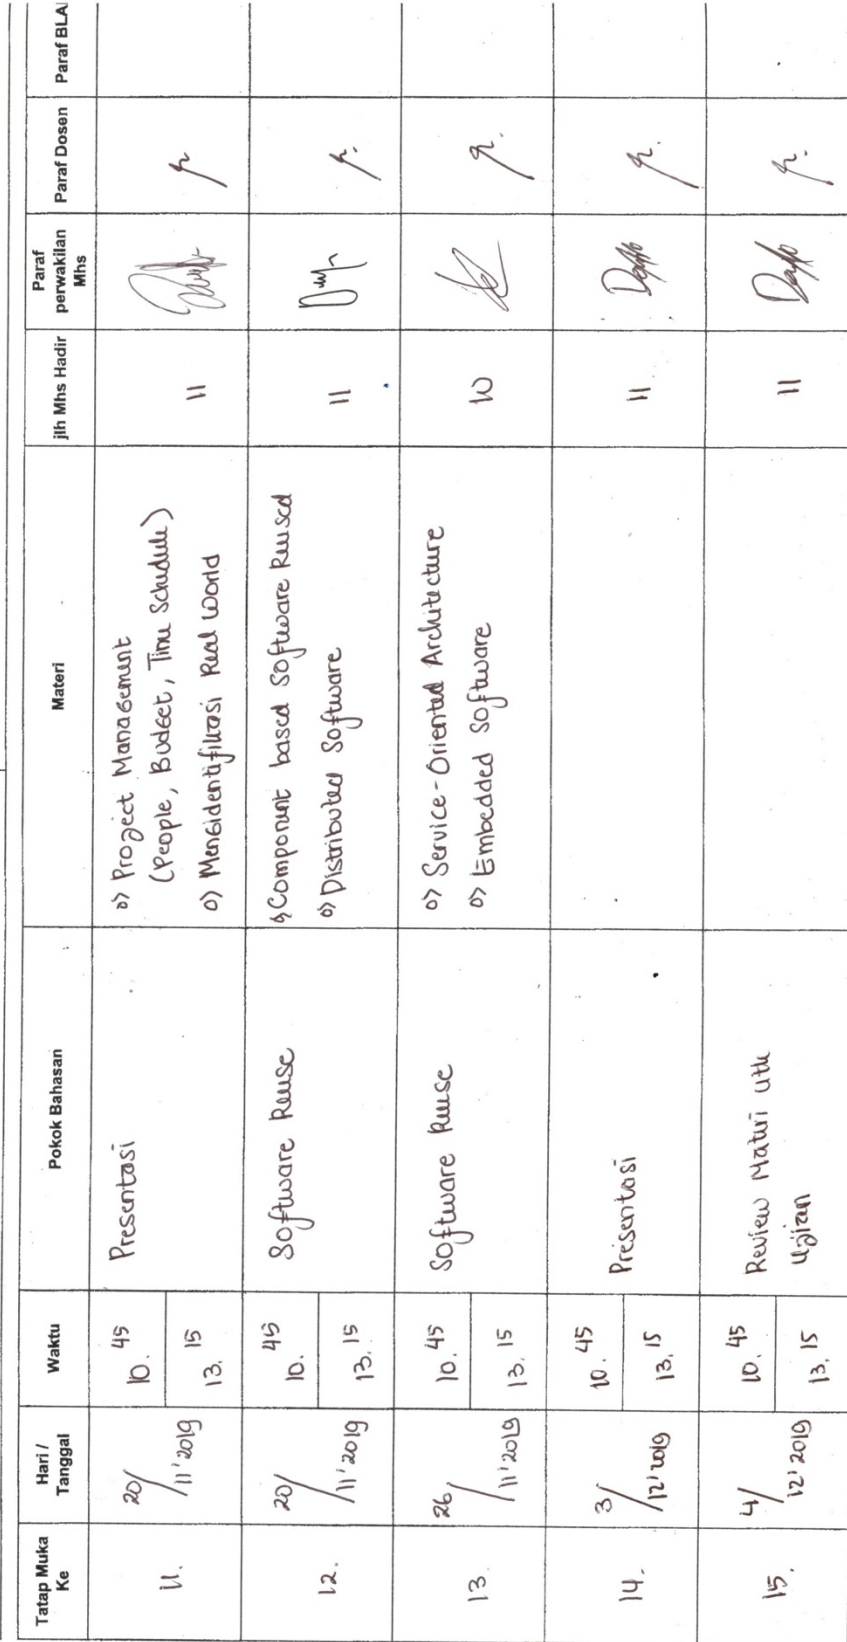 Tatap Muka Ke
Hari / Tanggal
Waktu
Pokok Bahasan
Materi
jlh Mhs Hadir
Paraf perwakilan Mhs
Paraf Dosen
Paraf BLA
11.
20/11'2019
10.45
13.15
Presentasi
o) Project Management
(People, Budget, Time Schedule)
o) Mengidentifikasi Real World
11
12.
20/11'2019
10.45
13.15
Software Reuse
o) Component based Software Reused
o) Distributed Software
11
13.
26/11'2019
10.45
13.15
Software Reuse
o) Service-Oriented Architecture
o) Embedded Software
10
14.
3/12'2019
10.45
13.15
Presentasi
11
15.
4/12'2019
10.45
13.15
Review Materi utk
Ujian
11